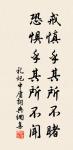 戒慎乎其所不睹
恐惧乎其所不闻
礼记中庸词典网集